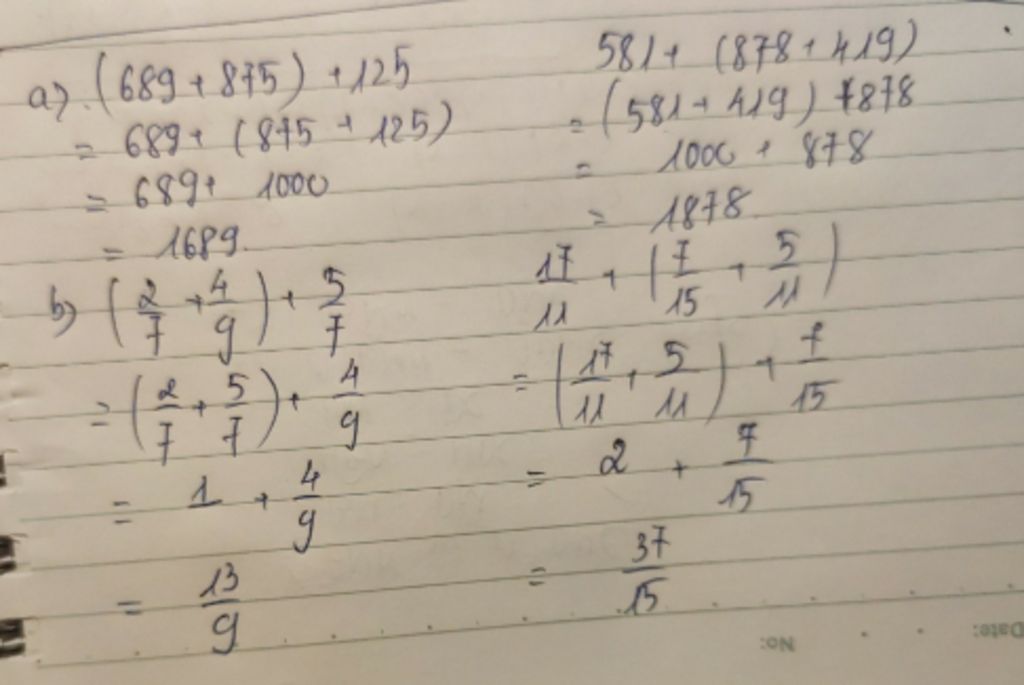 a) (689 + 875) + 125
= 689 + (875 + 125)
= 689 + 1000
= 1689.
581 + (878 + 419)
= (581 + 419) + 878
= 1000 + 878
= 1878.
b) (2/7 + 4/9) + 5/7
= (2/7 + 5/7) + 4/9
= 1 + 4/9
= 13/9
17/11 + (7/15 + 5/11)
= (17/11 + 5/11) + 7/15
= 2 + 7/15
= 37/15
No:
Date: